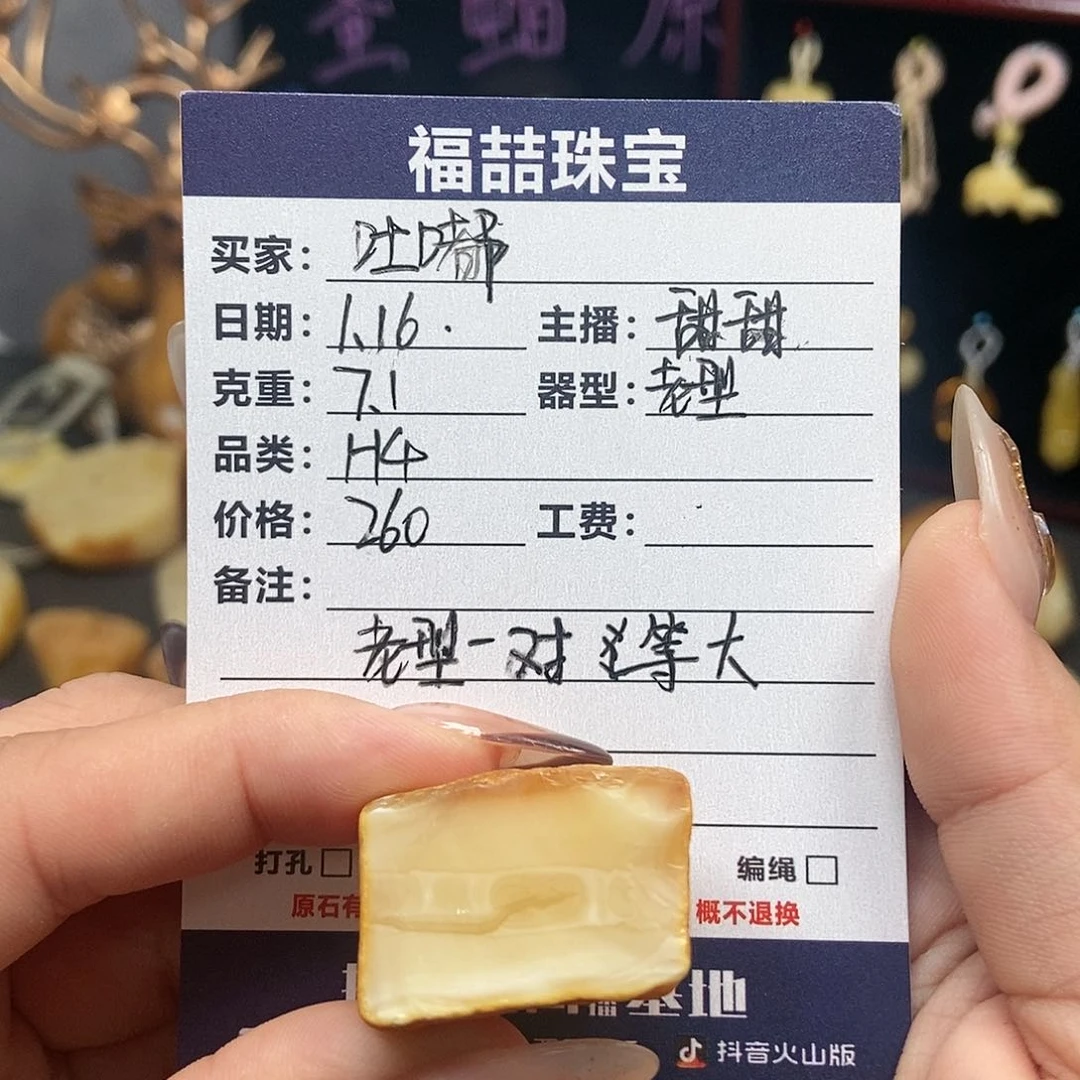 福喆珠宝
买家：吐嘟
日期：1.16. 主播：甜甜
克重：7.1 器型：老型
品类：H4
价格：260 工费：
备注：
老型一对 等大
打孔□ 编绳□
原石有 概不退换
播基地
抖音火山版